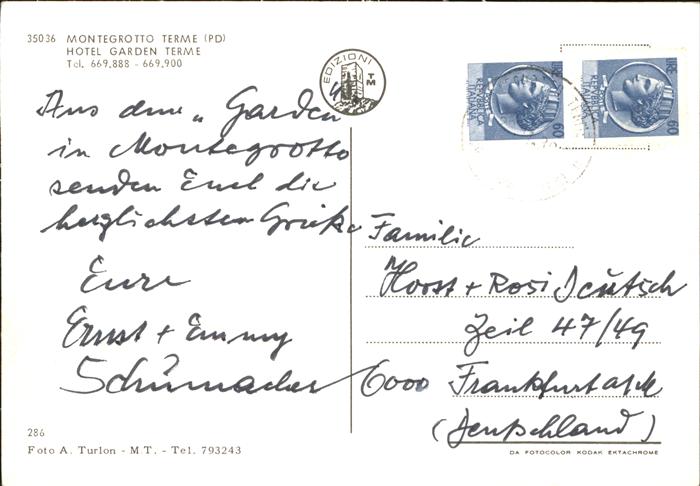 35036 MONTEGROTTO TERME (PD)
HOTEL GARDEN TERME
Tel. 669.888 - 669,900
EDIZIONI
TM
LIRE 60
REPUBBLICA ITALIANA
LIRE 60
REPUBBLICA ITALIANA
Aus dem „Garden
in Montegrotto
senden Euch die
herzlichsten Grüße
Eure
Ernst + Emmy
Schumacher
Familie
Horst + Rosi Deutsch
Zeil 47/49
6000 Frankfurt a/M
(Deutschland)
286
Foto A. Turlon - M.T. - Tel. 793243
DA FOTOCOLOR KODAK EKTACHROME